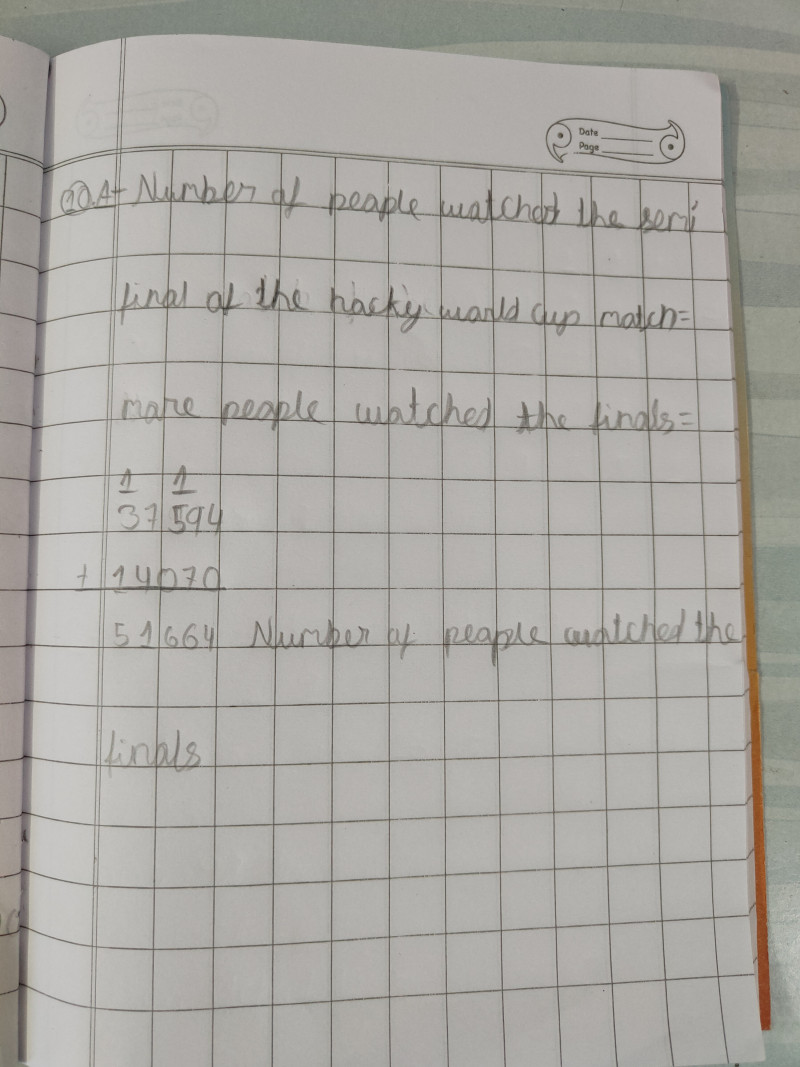 Date
Page
10.A- Number of people watched the semi
final of the hocky world cup match=
more people watched the finals=
1 1
37594
+ 14070
51664 Number of people watched the
finals